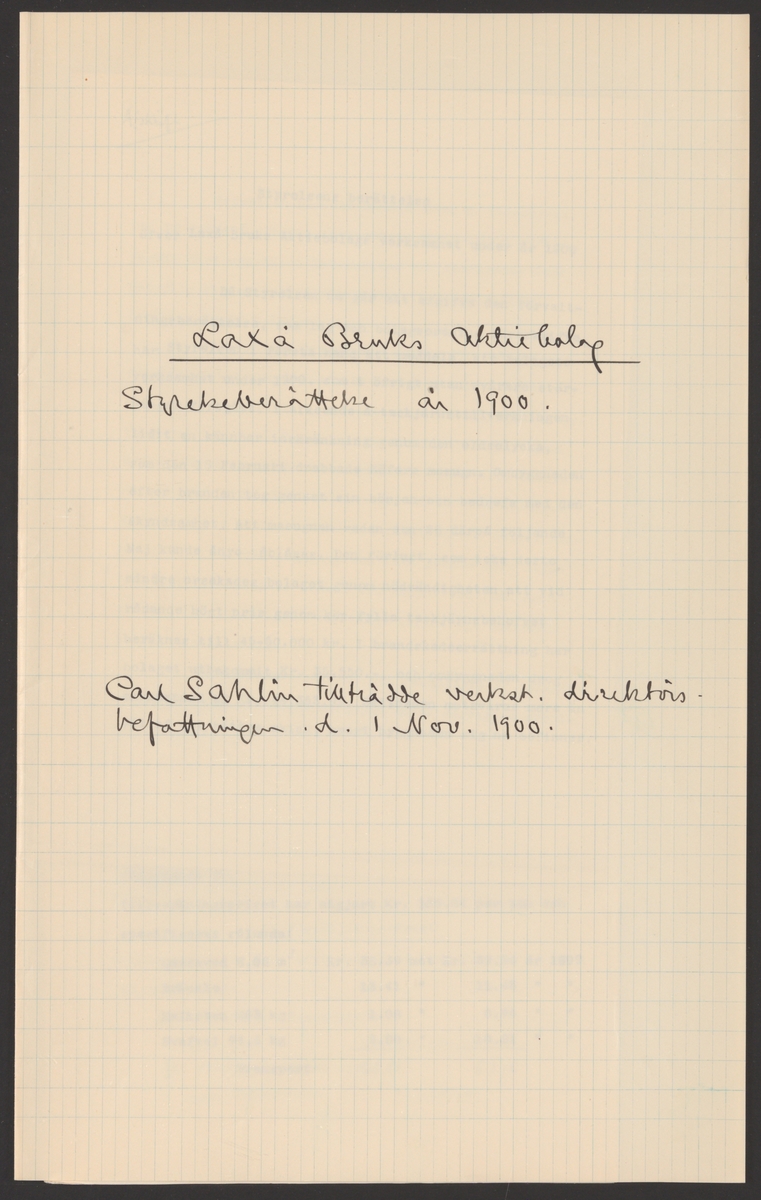 Laxå Bruks Aktiebolag
Styrelseberättelse år 1900.
Carl Sahlin tillträdde verkst. direktörs-
befattningen d. 1 Nov. 1900.